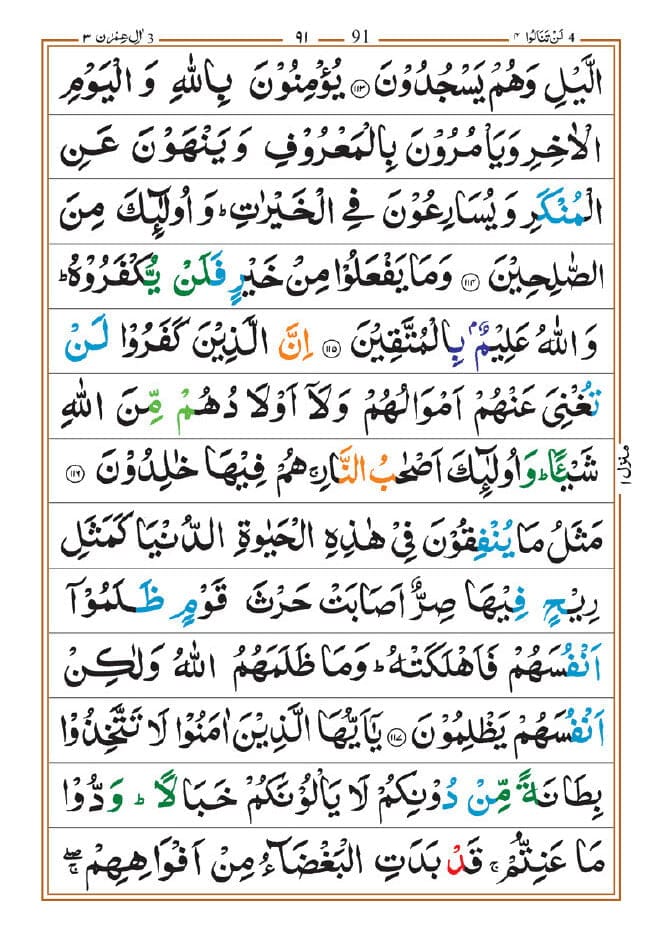 4 لَنْ تَنَالُوا ۴ 91 ۹۱ 3 اٰلِ عِمْرٰن ۳
الَّيْلِ وَهُمْ يَسْجُدُوْنَ ﴿۱۱۳﴾ يُؤْمِنُوْنَ بِاللّٰهِ وَ الْيَوْمِ
الْاٰخِرِ وَيَاْمُرُوْنَ بِالْمَعْرُوْفِ وَيَنْهَوْنَ عَنِ
الْمُنْكَرِ وَيُسَارِعُوْنَ فِى الْخَيْرٰتِ ؕ وَ اُولٰٓئِكَ مِنَ
الصّٰلِحِيْنَ ﴿۱۱۴﴾ وَمَا يَفْعَلُوْا مِنْ خَيْرٍ فَلَنْ يُّكْفَرُوْهُ ؕ
وَاللّٰهُ عَلِيْمٌۢ بِالْمُتَّقِيْنَ ﴿۱۱۵﴾ اِنَّ الَّذِيْنَ كَفَرُوْا لَنْ
تُغْنِىَ عَنْهُمْ اَمْوَالُهُمْ وَلَاۤ اَوْلَادُهُمْ مِّنَ اللّٰهِ
شَيْـًٔا ؕ وَاُولٰٓئِكَ اَصْحٰبُ النَّارِ ۚ هُمْ فِيْهَا خٰلِدُوْنَ ﴿۱۱۶﴾
مَثَلُ مَا يُنْفِقُوْنَ فِىْ هٰذِهِ الْحَيٰوةِ الدُّنْيَا كَمَثَلِ
رِيْحٍ فِيْهَا صِرٌّ اَصَابَتْ حَرْثَ قَوْمٍ ظَلَمُوْۤا
اَنْفُسَهُمْ فَاَهْلَكَتْهُ ؕ وَمَا ظَلَمَهُمُ اللّٰهُ وَلٰكِنْ
اَنْفُسَهُمْ يَظْلِمُوْنَ ﴿۱۱۷﴾ يٰۤاَيُّهَا الَّذِيْنَ اٰمَنُوْا لَا تَتَّخِذُوْا
بِطَانَةً مِّنْ دُوْنِكُمْ لَا يَاْلُوْنَكُمْ خَبَالًا ؕ وَدُّوْا
مَا عَنِتُّمْ ۚ قَدْ بَدَتِ الْبَغْضَآءُ مِنْ اَفْوَاهِهِمْ ۖۚ
منزل ۱